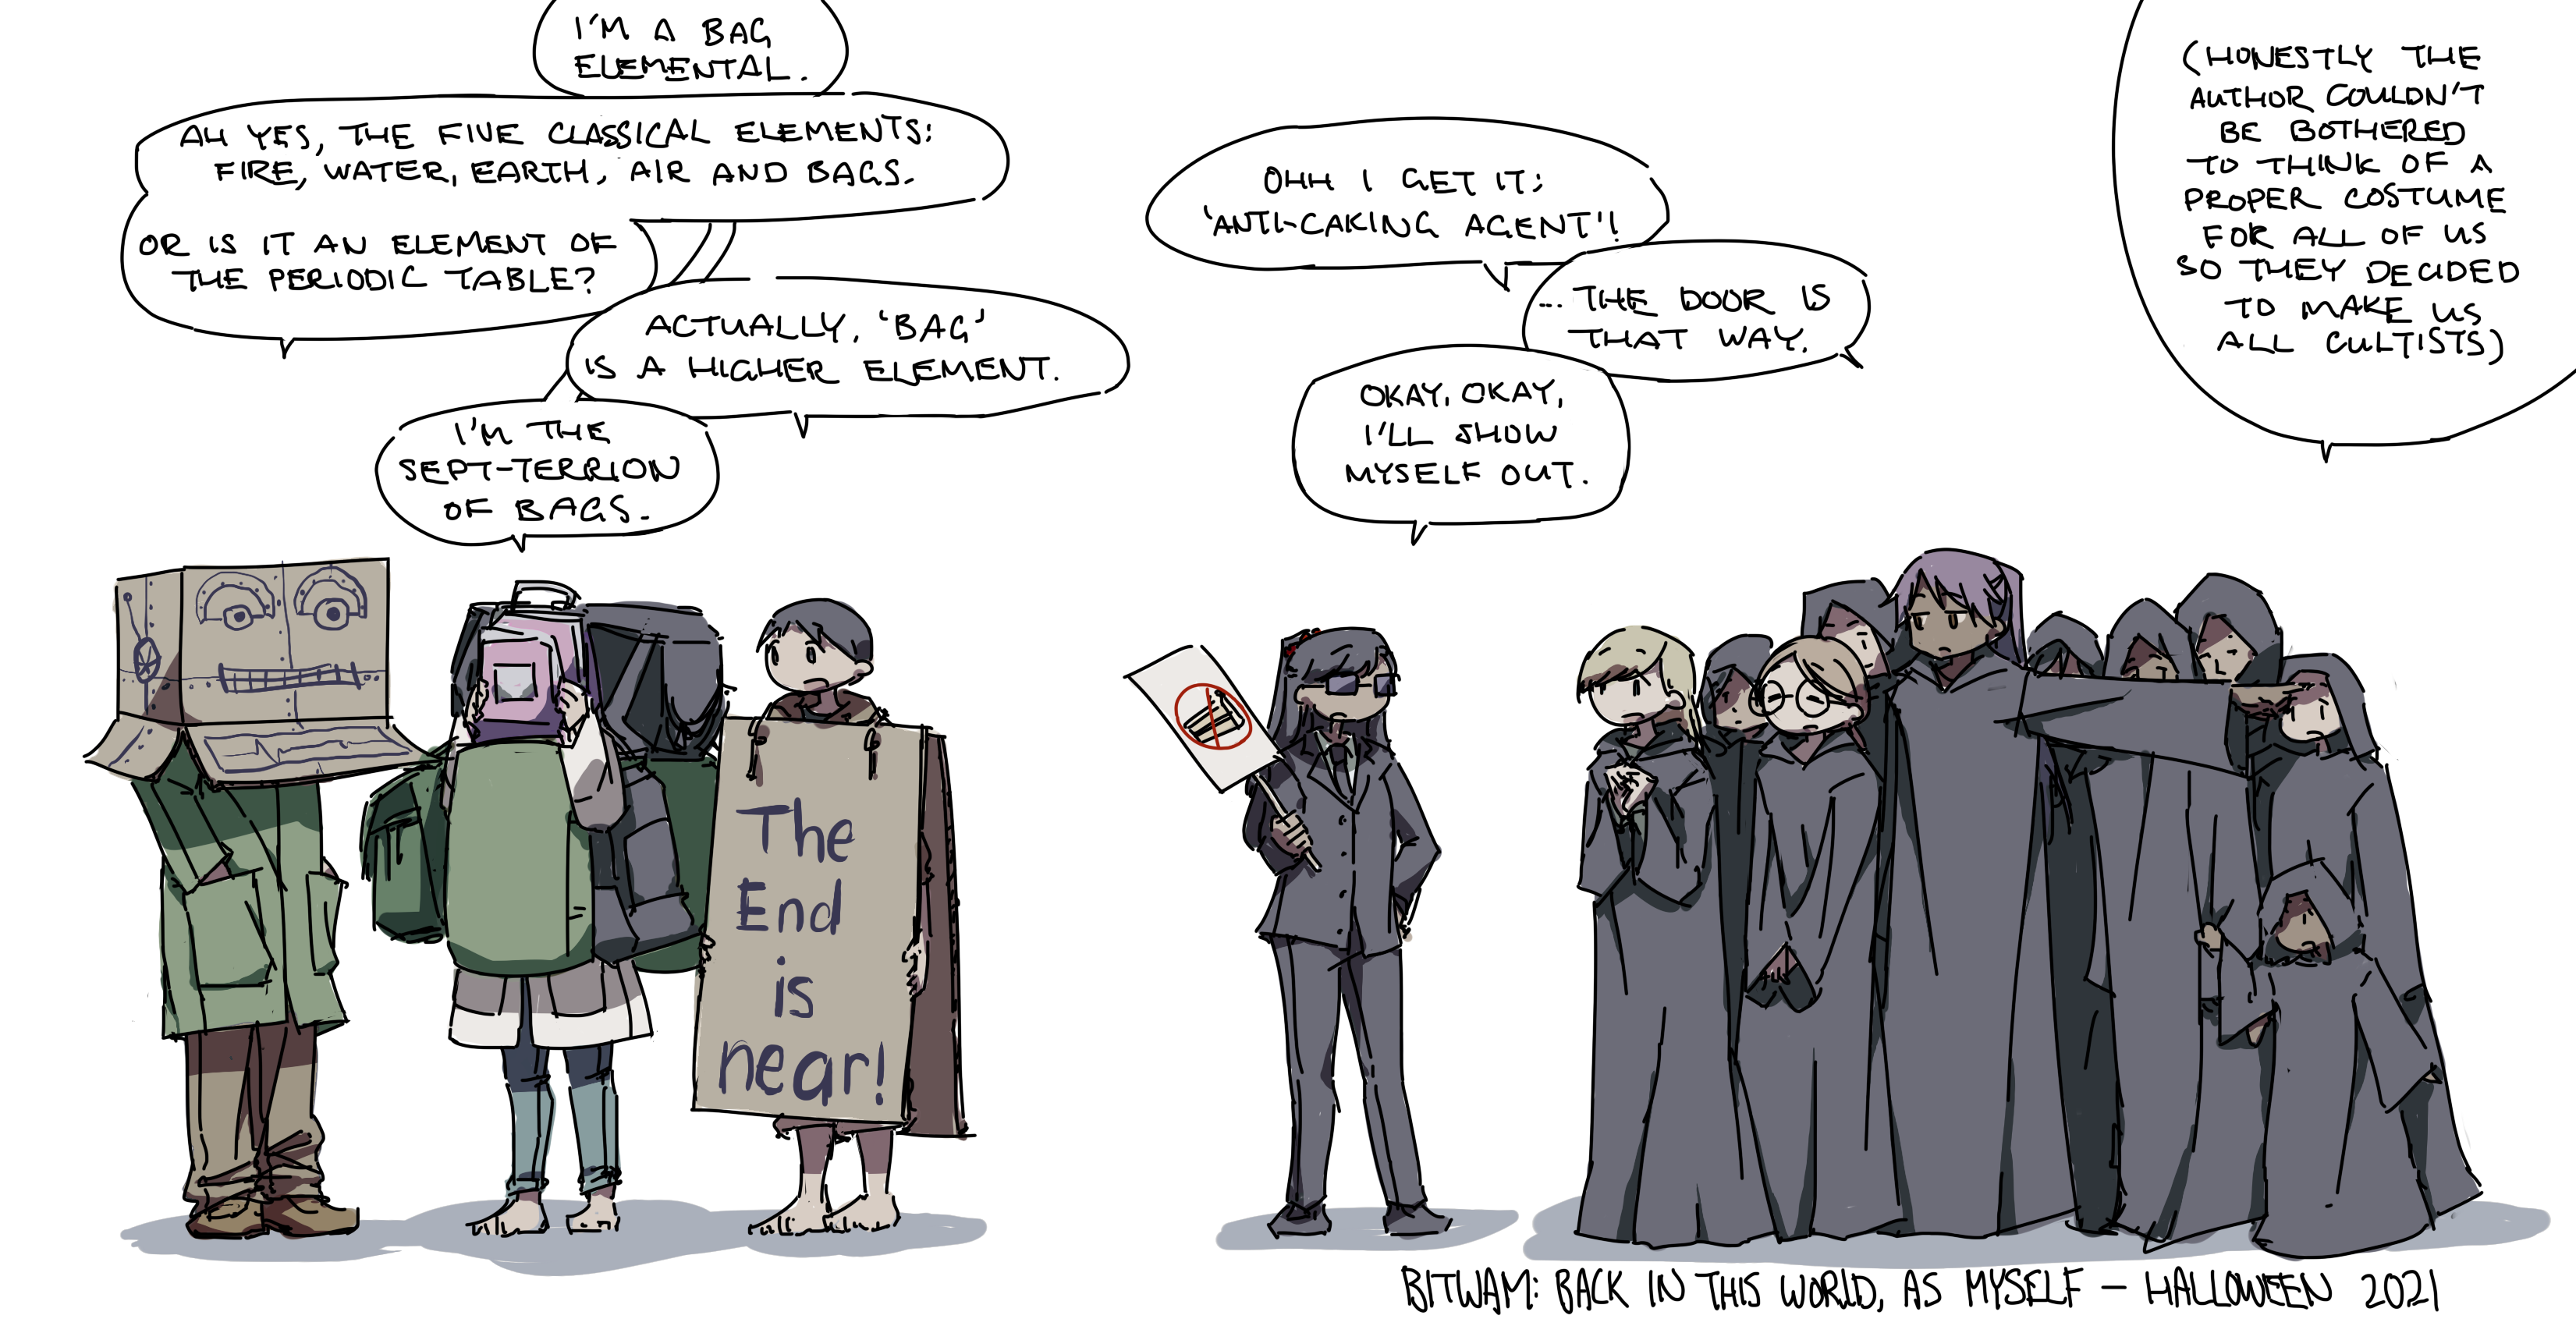 I'M A BAG
ELEMENTAL.
AH YES, THE FIVE CLASSICAL ELEMENTS:
FIRE, WATER, EARTH, AIR AND BAGS.
OR IS IT AN ELEMENT OF
THE PERIODIC TABLE?
ACTUALLY, 'BAG'
IS A HIGHER ELEMENT.
I'M THE
SEPT-TERRION
OF BAGS.
OHH I GET IT:
'ANTI-CAKING AGENT'!
... THE DOOR IS
THAT WAY.
OKAY, OKAY,
I'LL SHOW
MYSELF OUT.
(HONESTLY THE
AUTHOR COULDN'T
BE BOTHERED
TO THINK OF A
PROPER COSTUME
FOR ALL OF US
SO THEY DECIDED
TO MAKE US
ALL CULTISTS)
The
End
is
near!
BITWAM: BACK IN THIS WORLD, AS MYSELF – HALLOWEEN 2021